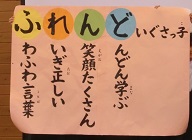 ふれんど いぐさっ子
わふわ言葉
いぎ正しい
笑顔たくさん
んどん学ぶ